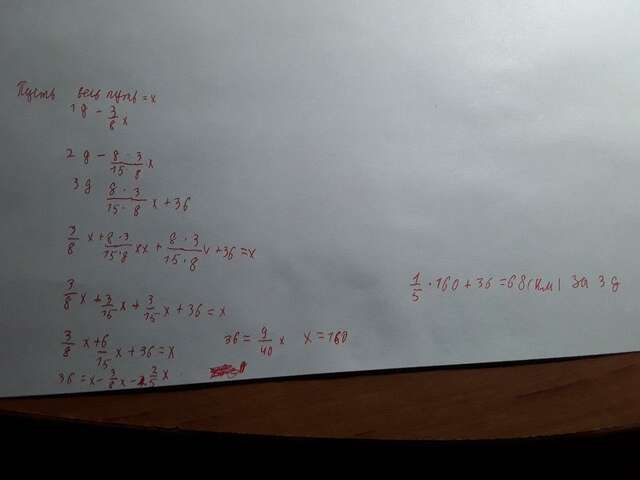 Пусть весь путь = x
1 д - 3/8 x
2 д - 8·3/15·8 x
3 д 8·3/15·8 x + 36
3/8 x + 8·3/15·8 xx + 8·3/15·8 x + 36 = x
3/8 x + 3/15 x + 3/15 x + 36 = x
3/8 x + 6/15 x + 36 = x
36 = x - 3/8 x - 2/5 x
36 = 9/40 x x = 160
1/5 · 160 + 36 = 68 (км) за 3 д